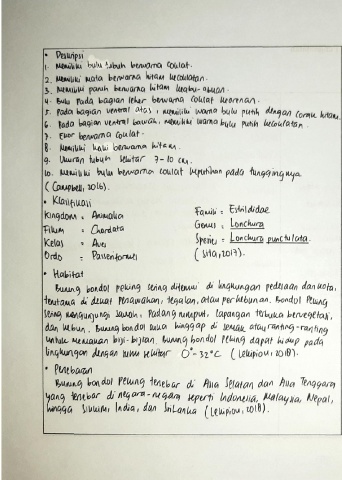 • Deskripsi
1. Memiliki bulu tubuh berwarna coklat.
2. Memiliki mata berwarna hitam kecoklatan.
3. Memiliki paruh berwarna hitam keabu-abuan.
4. Bulu pada bagian leher berwarna coklat kearenan.
5. Pada bagian ventral atas, memiliki warna bulu putih dengan corak hitam.
6. Pada bagian ventral bawah, memiliki warna bulu putih kecoklatan.
7. Ekor berwarna coklat.
8. Memiliki kaki berwarna hitam.
9. Ukuran tubuh sekitar 7-10 cm.
10. Memiliki bulu berwarna coklat keputihan pada tunggingnya
(Campbell, 2016).
• Klasifikasi
Kingdom = Animalia
Filum = Chordata
Kelas = Aves
Ordo = Passeriformes
Famili = Estrildidae
Genus = Lonchura
Spesies = Lonchura punctulata.
(Sita, 2017).
• Habitat
Burung bondol peking sering ditemui di lingkungan pedesaan dan kota,
terutama di dekat persawahan, tegalan, atau perkebunan. Bondol peking
sering mengunjungi sawah, padang rumput, lapangan terbuka bervegetasi,
dan kebun. Burung bondol suka hinggap di semak atau ranting-ranting
untuk memakan biji-bijian. Burung bondol peking dapat hidup pada
lingkungan dengan suhu sekitar 0°-32°C (Lekipiou, 2018).
• Penebaran
Burung bondol peking tersebar di Asia Selatan dan Asia Tenggara
yang tersebar di negara-negara seperti Indonesia, Malaysia, Nepal,
hingga Sikkim, India, dan Sri Lanka (Lekipiou, 2018).